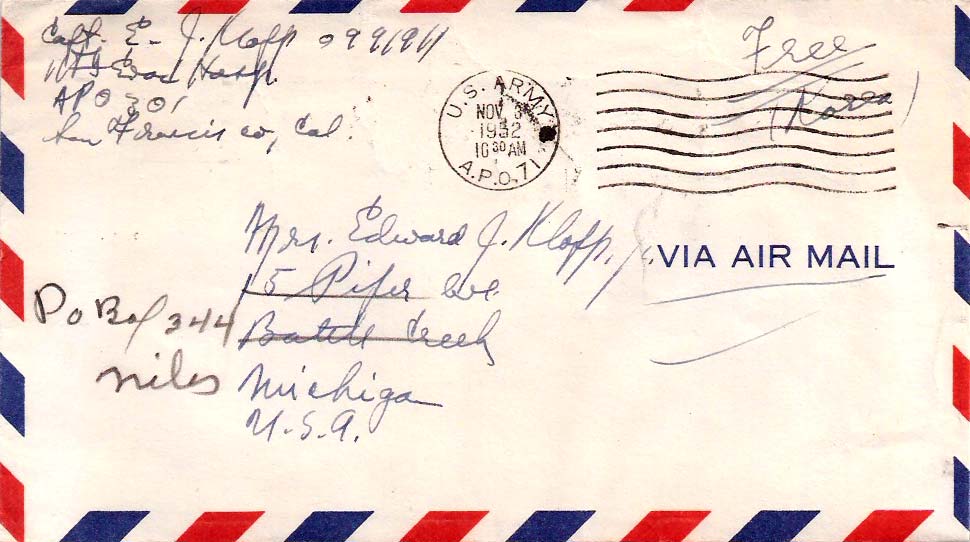 Capt. E. J. Klopp
11th Evac Hosp.
APO 301
San Francisco, Cal.
U.S. ARMY
NOV 3
1952
10 30 AM
A.P.O. 71
Free
(Korea)
Mrs. Edward J. Klopp, Jr.
VIA AIR MAIL
15 Piper Ave
Battle Creek
Po Box 344
Niles
Michigan
U.S.A.